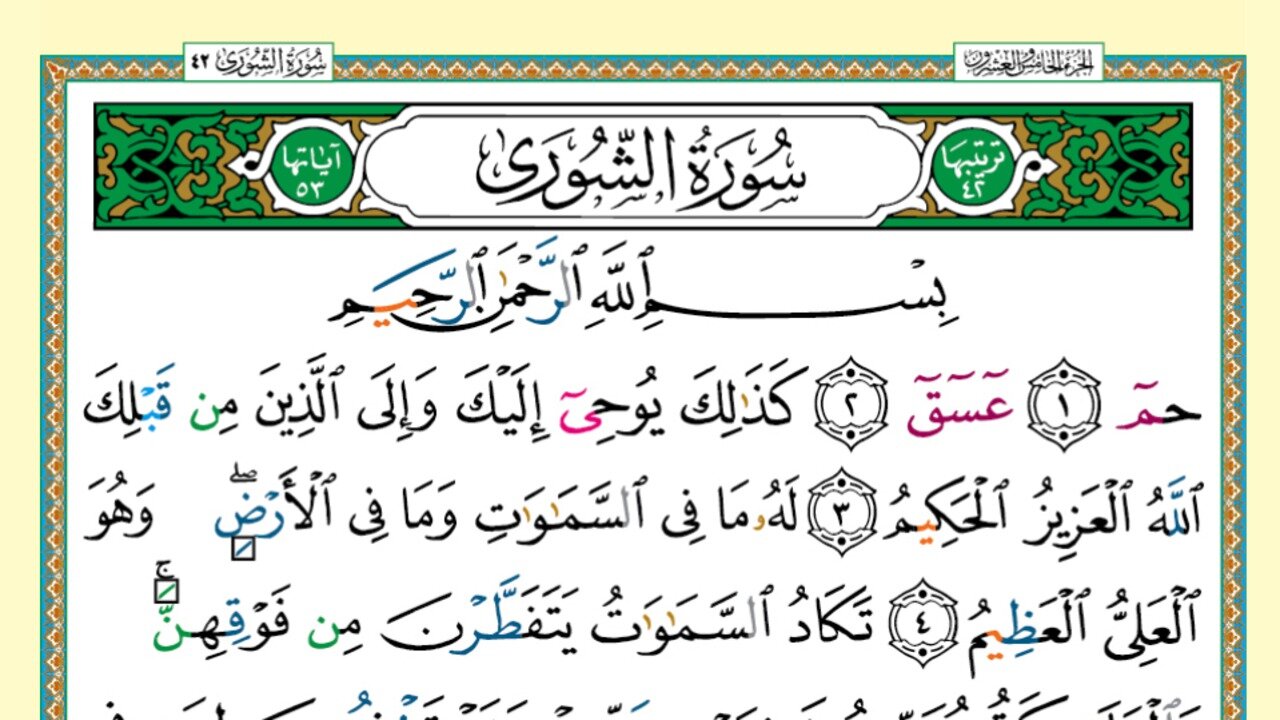 الجزء الخامس والعشرون
سورة الشورى ٤٢
ترتيبها ٤٢
سُورَةُ الشُّورَىٰ
آياتها ٥٣
بِسْمِ ٱللَّهِ ٱلرَّحْمَٰنِ ٱلرَّحِيمِ
حمٓ ١ عٓسٓقٓ ٢ كَذَٰلِكَ يُوحِىٓ إِلَيْكَ وَإِلَى ٱلَّذِينَ مِن قَبْلِكَ
ٱللَّهُ ٱلْعَزِيزُ ٱلْحَكِيمُ ٣ لَهُۥ مَا فِى ٱلسَّمَٰوَٰتِ وَمَا فِى ٱلْأَرْضِ ۖ وَهُوَ
ٱلْعَلِىُّ ٱلْعَظِيمُ ٤ تَكَادُ ٱلسَّمَٰوَٰتُ يَتَفَطَّرْنَ مِن فَوْقِهِنَّ ۚ